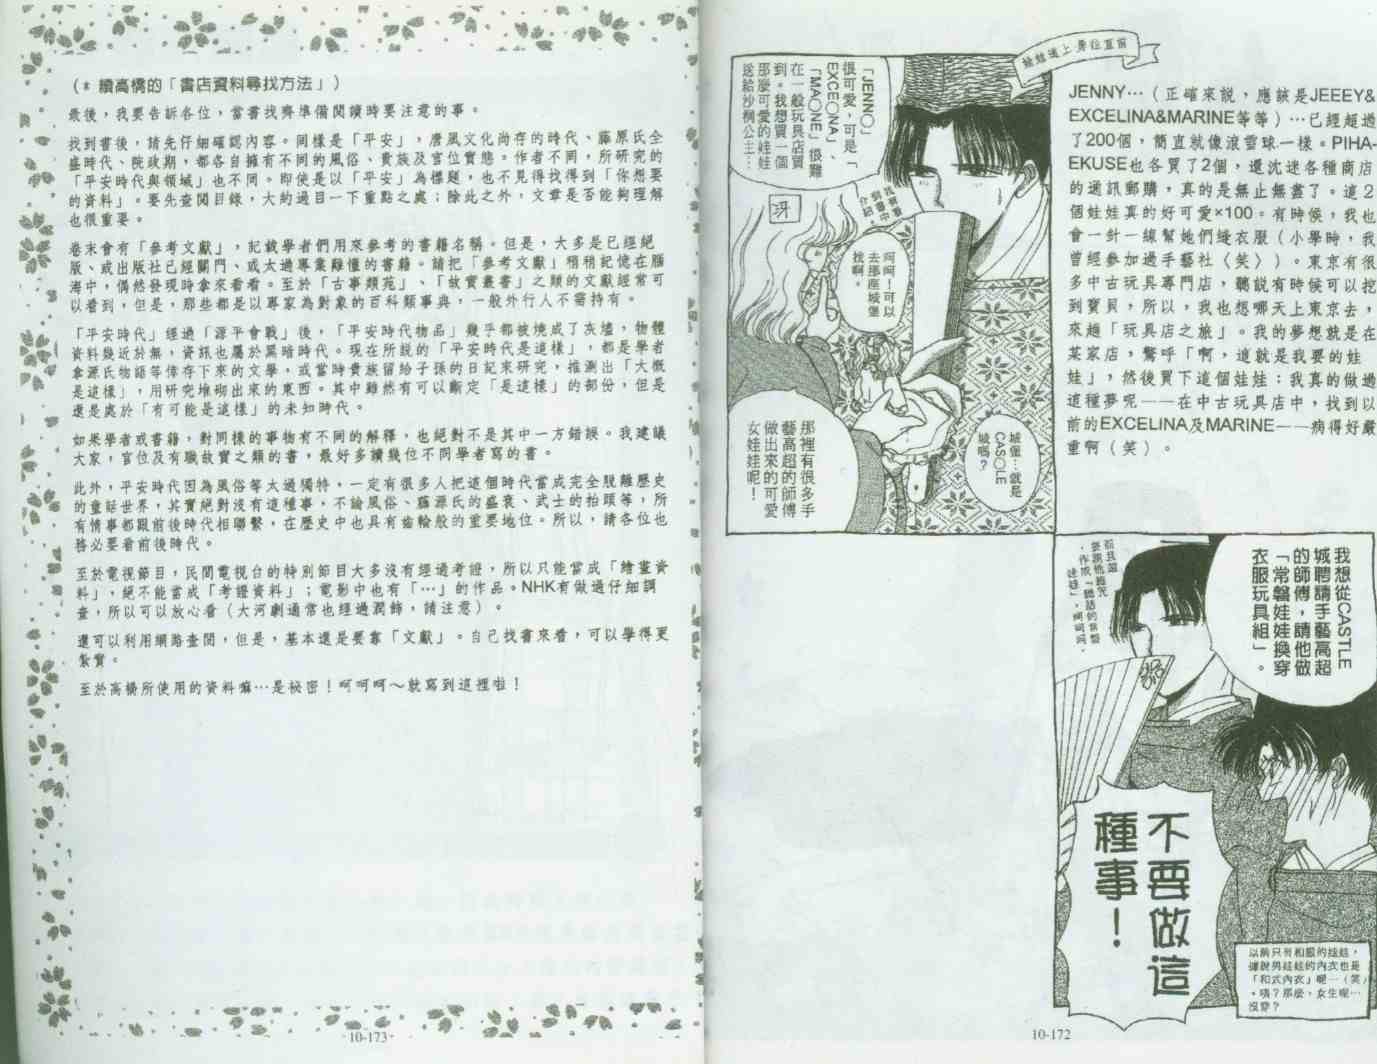 (* 續高橋的「書店資料尋找方法」)
最後，我要告訴各位，當書找齊準備閱讀時要注意的事。
找到書後，請先仔細確認內容。同樣是「平安」，唐風文化尚存的時代、藤原氏全
盛時代、院政期，都各自擁有不同的風俗、貴族及官位實態。作者不同，所研究的
「平安時代與領域」也不同。即使是以「平安」為標題，也不見得找得到「你想要
的資料」。要先查閱目錄，大約過目一下重點之處；除此之外，文章是否能夠理解
也很重要。
卷末會有「參考文獻」，記載學者們用來參考的書籍名稱。但是，大多是已經絕
版、或出版社已經關門、或太過專業難懂的書籍。請把「參考文獻」稍稍記憶在腦
海中，偶然發現時拿來看看。至於「古事類苑」、「故實叢書」之類的文獻經常可
以看到，但是，那些都是以專家為對象的百科類事典，一般外行人不需持有。
「平安時代」經過「源平會戰」後，「平安時代物品」幾乎都被燒成了灰燼，物體
資料幾近於無，資訊也屬於黑暗時代。現在所說的「平安時代是這樣」，都是學者
拿源氏物語等倖存下來的文學，或當時貴族留給子孫的日記來研究，推測出「大概
是這樣」，用研究堆砌出來的東西。其中雖然有可以斷定「是這樣」的部份，但是
還是處於「有可能是這樣」的未知時代。
如果學者或書籍，對同樣的事物有不同的解釋，也絕對不是其中一方錯誤。我建議
大家，官位及有職故實之類的書，最好多讀幾位不同學者寫的書。
此外，平安時代因為風俗等太過獨特，一定有很多人把這個時代當成完全脫離歷史
的童話世界，其實絕對沒有這種事，不論風俗、藤源氏的盛衰、武士的抬頭等，所
有情事都跟前後時代相聯繫，在歷史中也具有齒輪般的重要地位。所以，請各位也
務必要看前後時代。
至於電視節目，民間電視台的特別節目大多沒有經過考證，所以只能當成「繪畫資
料」，絕不能當成「考證資料」；電影中也有「…」的作品。NHK有做過仔細調
查，所以可以放心看（大河劇通常也經過潤飾，請注意）。
還可以利用網路查閱，但是，基本還是要靠「文獻」。自己找書來看，可以學得更
紮實。
至於高橋所使用的資料嘛…是祕密！呵呵呵～就寫到這裡啦！
10-173
「JENN○」
很可愛，可是「
EXCE○NA」、
「MA○NE」很難
在一般玩具店買
到。我想買一個
那麼可愛的娃娃
送給沙桐公主…
呵呵！可以
去那座城堡
找啊。
城堡…就是
CAS○LE
城嗎？
那裡有很多手
藝高超的師傅
做出來的可愛
女娃娃呢！
JENNY…（正確來說，應該是JEEEY&
EXCELINA&MARINE等等）…已經超過
了200個，簡直就像滾雪球一樣。PIHA-
EKUSE也各買了2個，還沈迷各種商店
的通訊郵購，真的是無止無盡了。這２
個娃娃真的好可愛×100。有時候，我也
會一針一線幫她們縫衣服（小學時，我
曾經參加過手藝社〈笑〉）。東京有很
多中古玩具專門店，聽說有時候可以挖
到寶貝，所以，我也想哪天上東京去，
來趟「玩具店之旅」。我的夢想就是在
某家店，驚呼「啊，這就是我要的娃
娃」，然後買下這個娃娃：我真的做過
這種夢呢——在中古玩具店中，找到以
前的EXCELINA及MARINE——病得好嚴
重啊（笑）。
我想從CASTLE
城聘請手藝高超
的師傅，請他做
「常磐娃娃換穿
衣服玩具組」。
不要做這
種事！
以前只有和服的娃娃，
據說男娃娃的內衣也是
「和式內衣」呢…（笑）
，咦？那麼，女生呢…
沒穿？
10-172